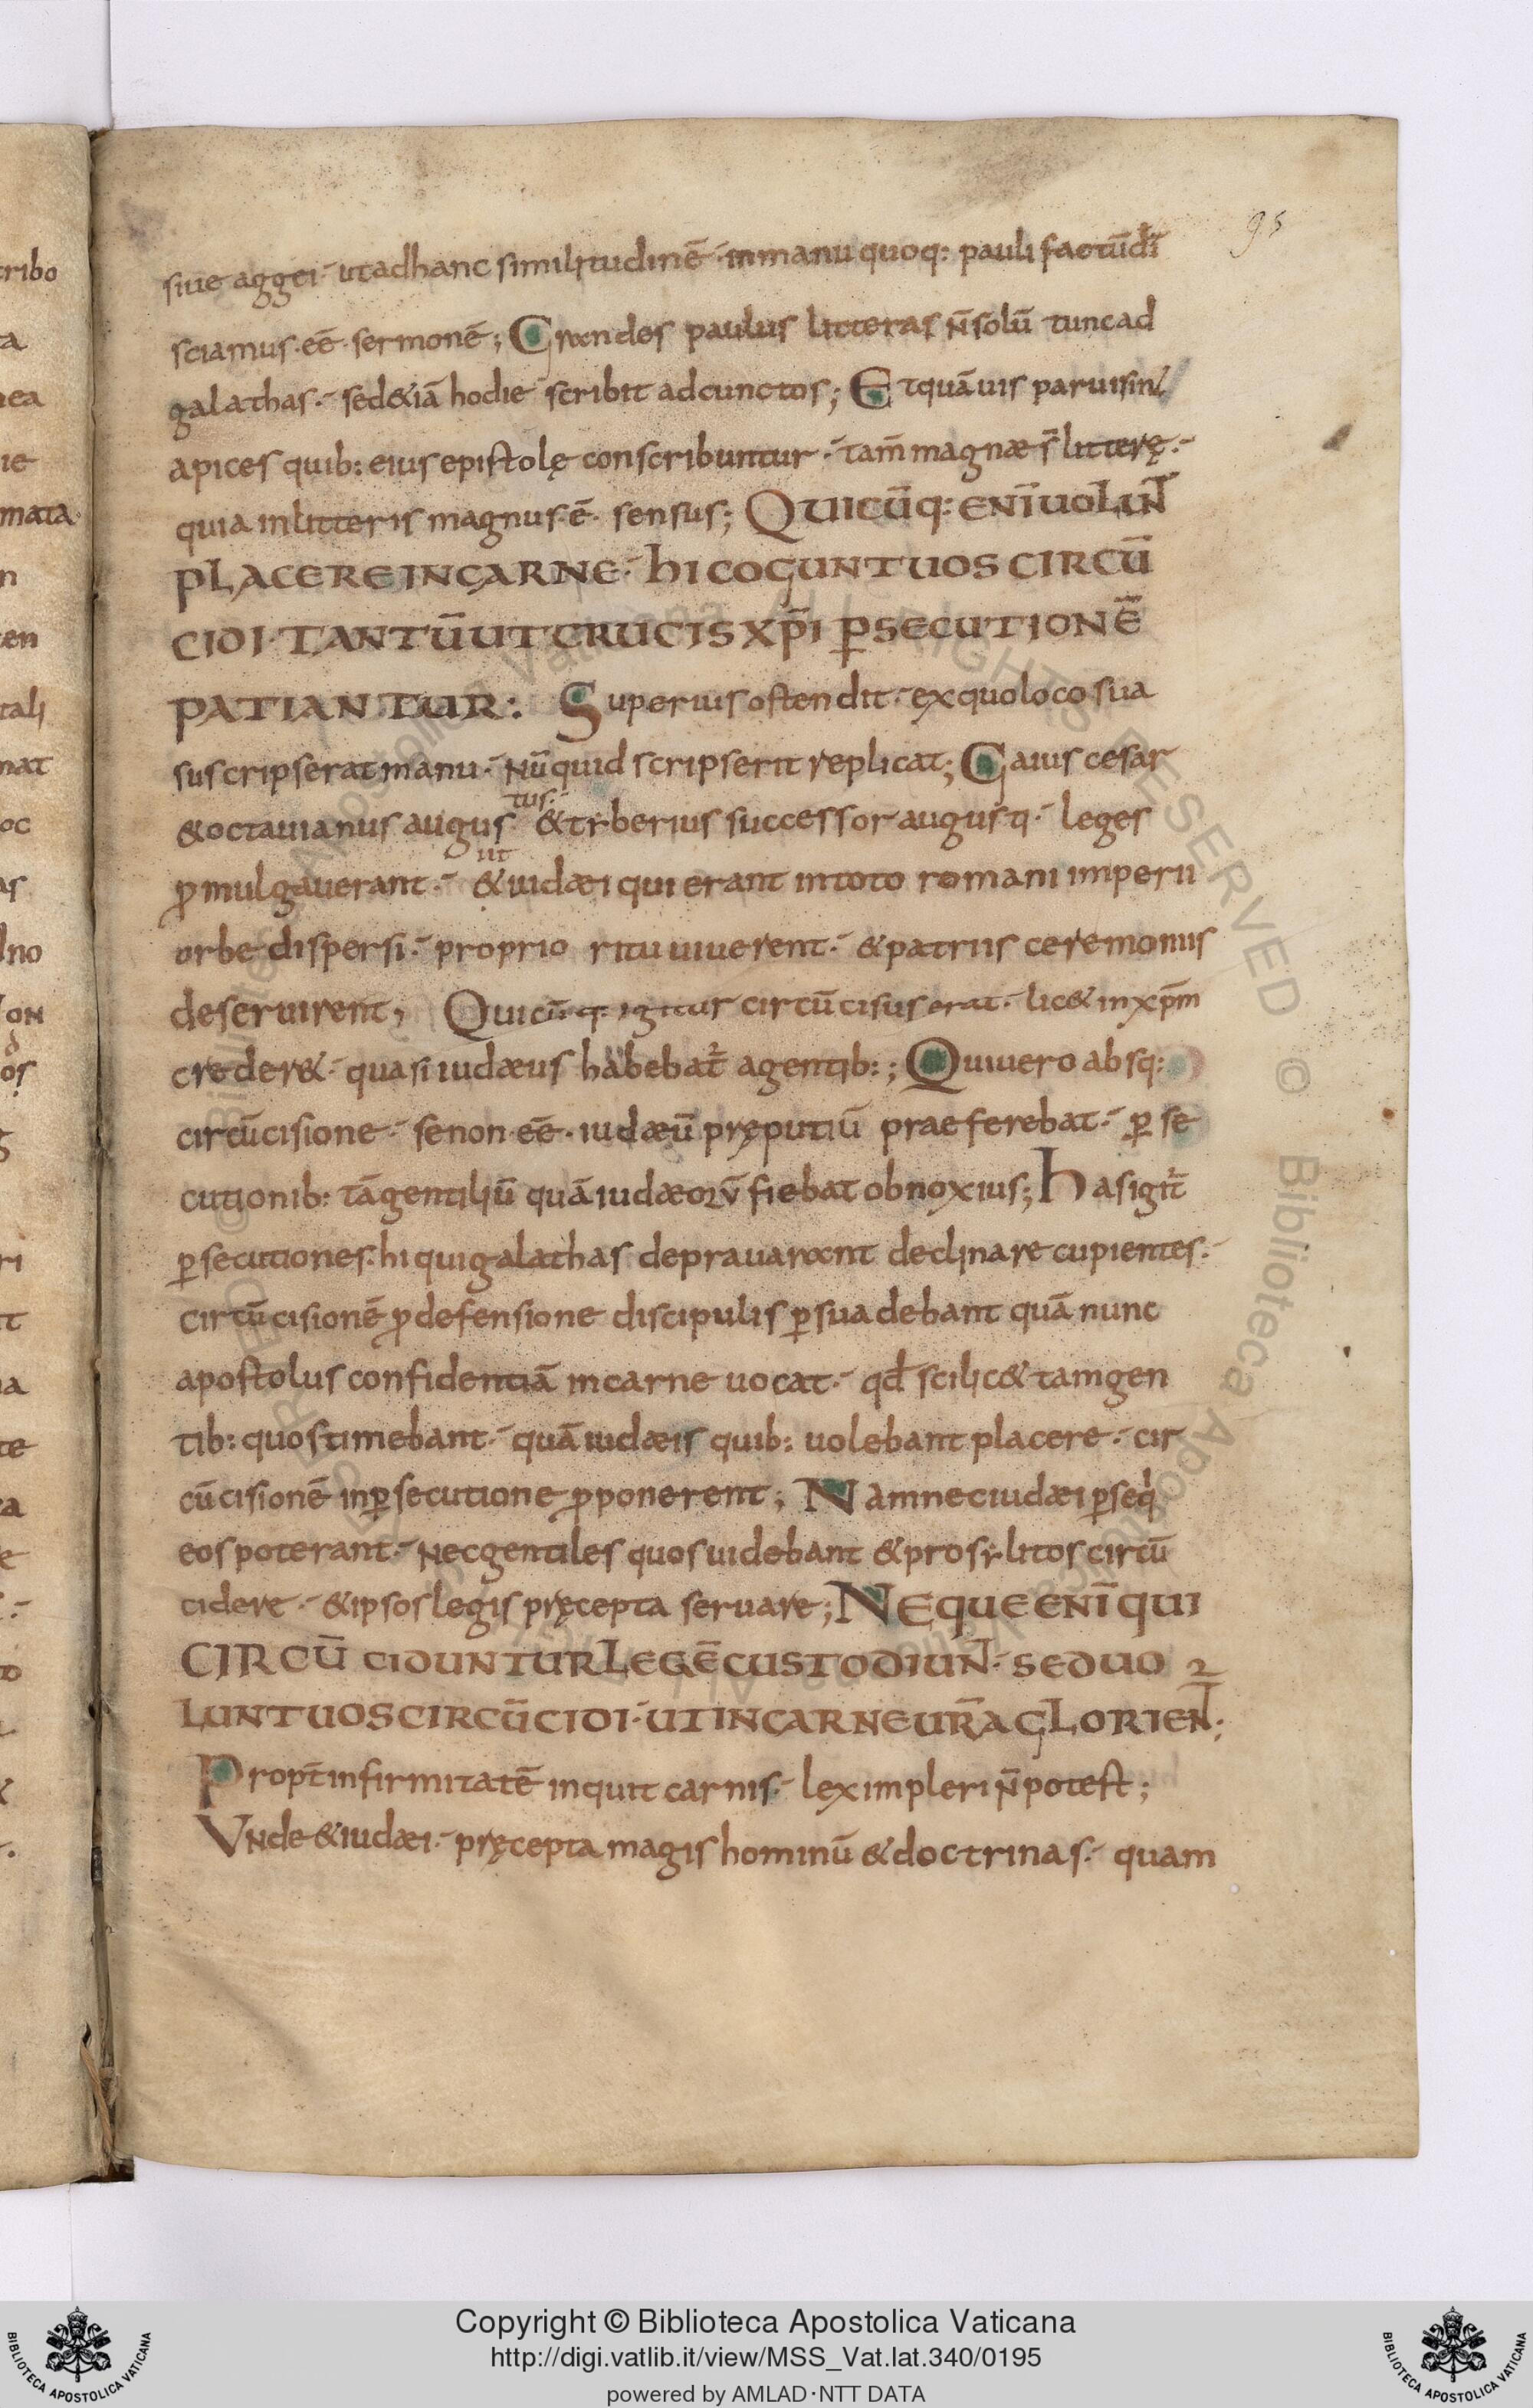 95
siue aggei · ut ad hanc similitudinē · in manu quoq: pauli factū dñi
sciamus · eē · sermonē ; Grandes paulus litteras n̄ solū tunc ad
galathas · sed & iā hodie scribit ad cunctos ; Et quāuis parui sint
apices quib: eius epistolę conscribuntur · tam̄ magnæ s̄ litterę ·
quia in litteris magnus · ē · sensus ; QUICŪQ: ENĪ UOLUNT
PLACERE IN CARNE · HI COGUNT UOS CIRCŪ
CIDI · TANTŪ UT CRUCIS XP̄I ꝑSECUTIONĒ
PATIANTUR : Superius ostendit · ex quo loco sua
suscripserat manu · Nū quid scripserit replicat ; Gaius cesar
& octauianus augus tus · & tyberius successor augusti · leges
ꝓmulgauerant · ut & iudæi qui erant in toto romani imperii
orbe dispersi · proprio ritu uiuerent · & patriis ceremoniis
deseruirent ; Quicūq· igitur circūcisus erat · lic& in xp̄m
creder& · quasi iudæus habebat᷑ a gentib: ; Qui uero absq:
circūcisione · se non · eē · iudæū pręputiū praeferebat · ꝑse
cutionib: tā gentiliū quā iudæorū fiebat obnoxius ; has igit᷑
ꝑsecutiones · hi qui galathas deprauarant declinare cupientes ·
circūcisionē ꝓ defensione discipulis ꝑsuadebant quā nunc
apostolus confidentiā in carne uocat · qđ scilic& tam gen
tib: quos timebant · quā iudæis quib: uolebant placere · cir
cūcisionē in ꝑsecutione ꝓponerent ; Nam nec iudæi ꝑseqi
eos poterant · Nec gentiles quos uidebant & prosylitos circū
cidere · & ipsos legis pręcepta seruare ; NEQUE ENĪ QUI
CIRCŪ CIDUNTUR LEGĒ CUSTODIUNT · SED UO
LUNT UOS CIRCŪCIDI · UT IN CARNE UR̄A GLORIENT ;
Propt̄ infirmitatē inquit carnis · lex impleri n̄ potest ;
Vnde & iudæi · pręcepta magis hominū & doctrinas · quam
Copyright © Biblioteca Apostolica Vaticana
http://digi.vatlib.it/view/MSS_Vat.lat.340/0195
powered by AMLAD·NTT DATA